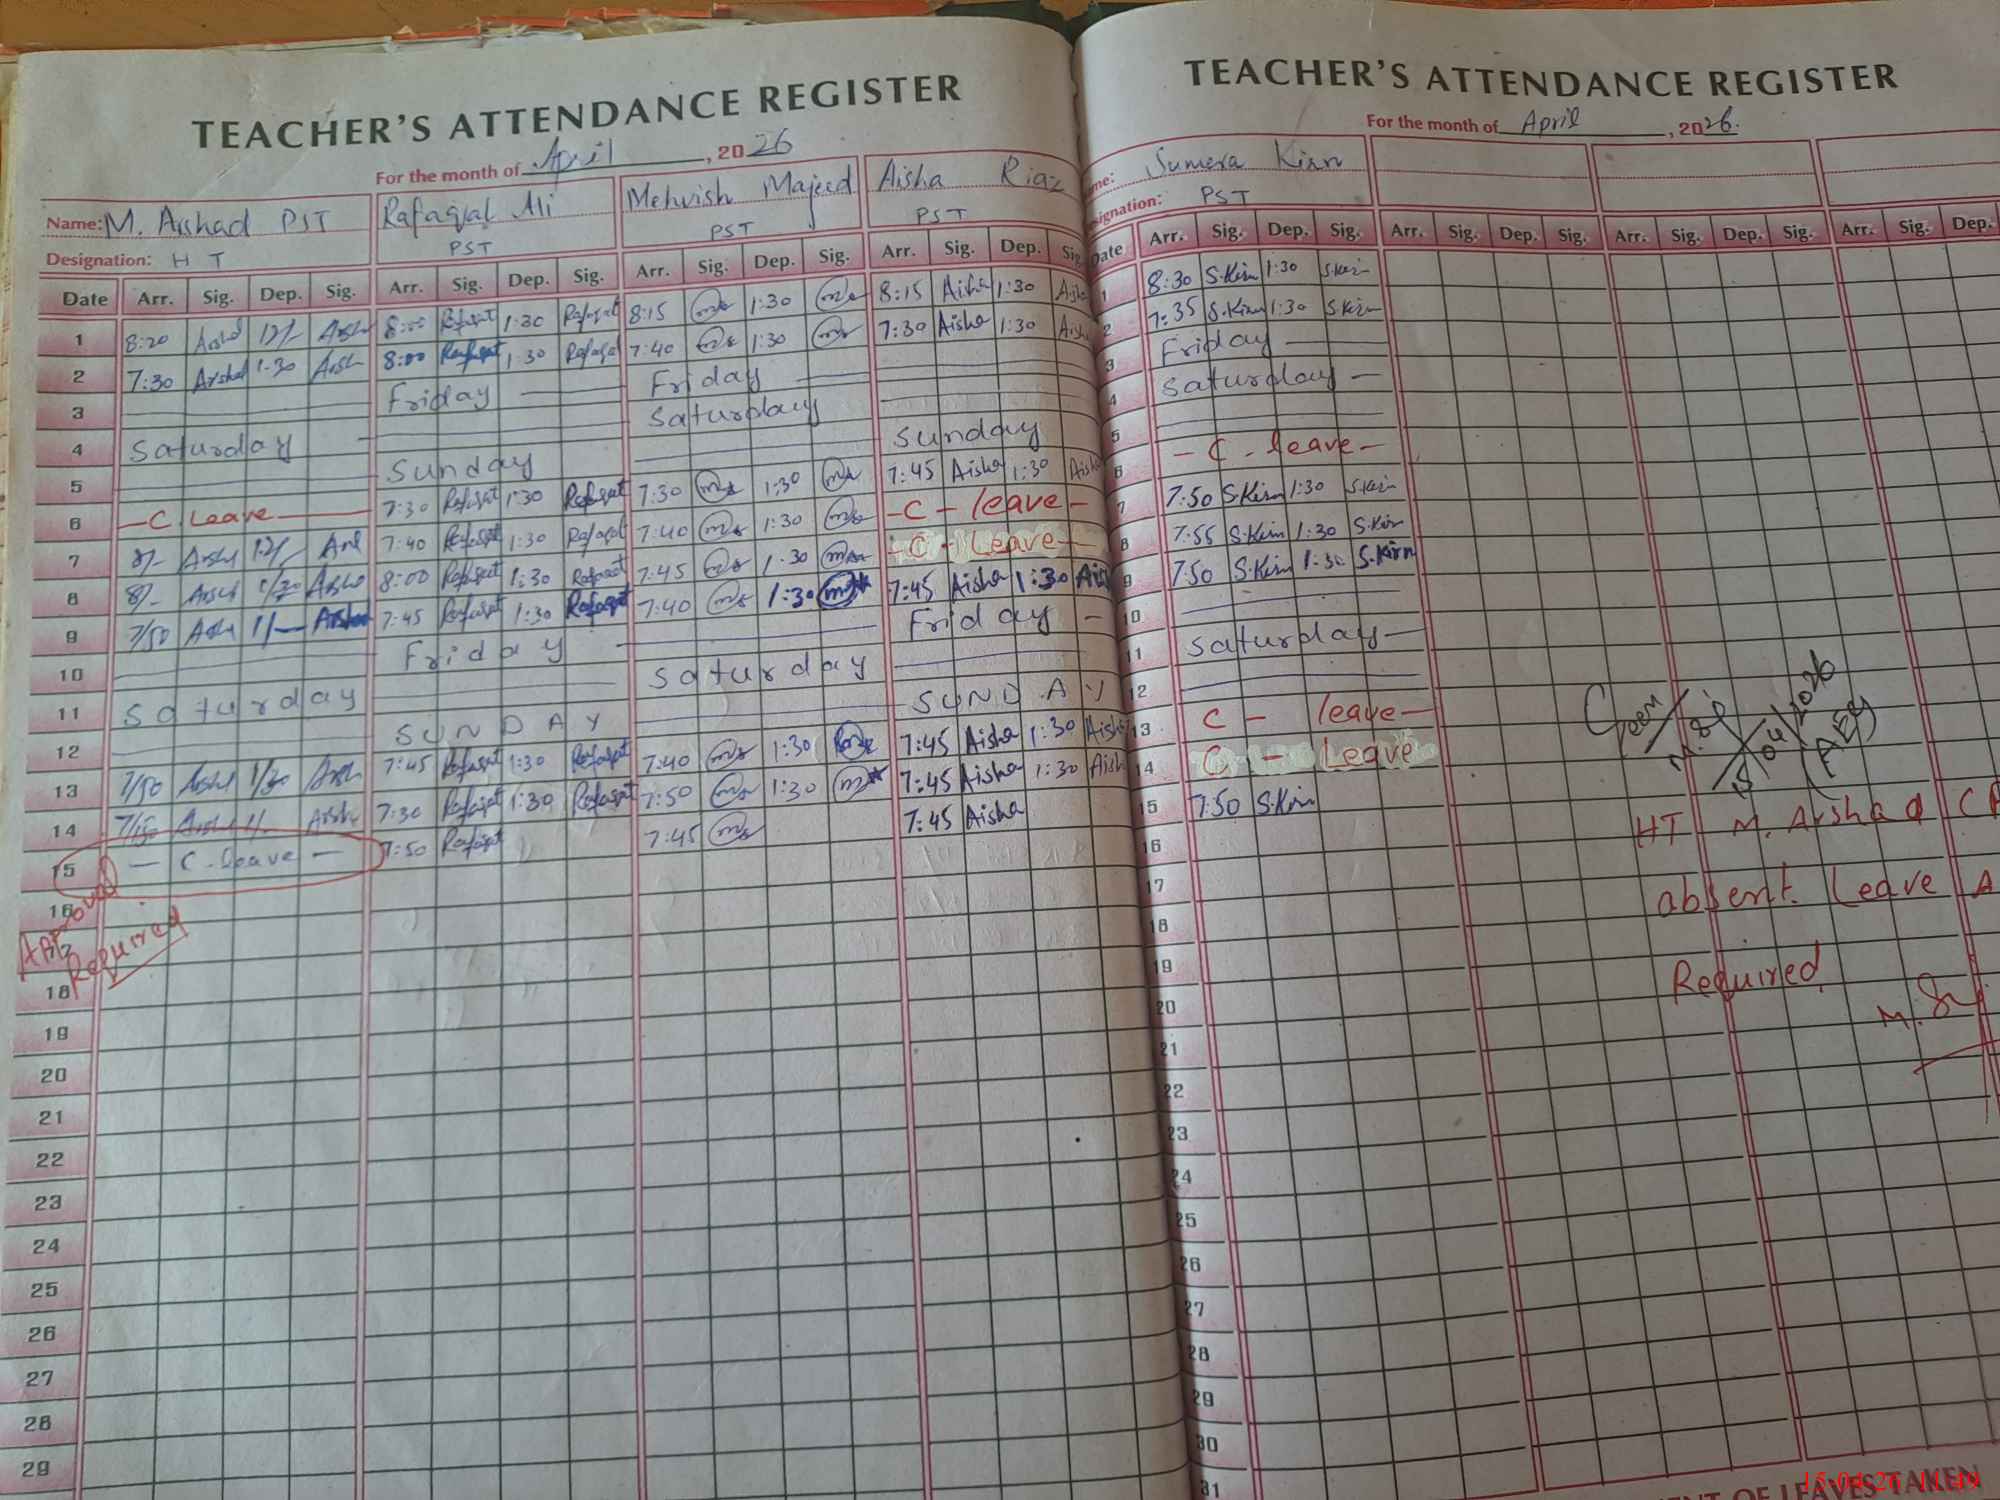 TEACHER'S ATTENDANCE REGISTER
For the month of April, 2026
Name: M. Arshad PST Rafaqat Ali Mehvish Majeed Aisha Riaz
Designation: H T PST PST PST
Date Arr. Sig. Dep. Sig. Arr. Sig. Dep. Sig. Arr. Sig. Dep. Sig. Arr. Sig. Dep. Sig
1 8:20 Arshd 12/- Arsh 8:00 Rafaqat 1:30 Rafaqat 8:15 ms 1:30 ms 8:15 Aisha 1:30 Aisha
2 7:30 Arshad 1:30 Arsh 8:00 Rafaqat 1:30 Rafaqat 7:40 ms 1:30 ms 7:30 Aisha 1:30 Aisha
3 Friday Friday
4 Saturday Saturday
5 Sunday Sunday
6 - C Leave 7:30 Rafaqat 1:30 Rafaqat 7:30 ms 1:30 ms 7:45 Aisha 1:30 Aisha
7 8/- Arshd 12/- 7:40 Rafaqat 1:30 Rafaqat 7:40 ms 1:30 ms - C - leave -
8 8/- Arshd 1/30 Arshd 8:00 Rafaqat 1:30 Rafaqat 7:45 ms 1:30 ms - C - Leave -
9 7/50 Arsh 1/- Arshad 7:45 Rafaqat 1:30 Rafaqat 7:40 ms 1:30 ms 7:45 Aisha 1:30 Ais
10 Friday Friday -
11 Saturday Saturday
12 SUNDAY SUNDAY
13 7/50 Arshd 1/30 Arsh 7:45 Rafaqat 1:30 Rafaqat 7:40 ms 1:30 ms 7:45 Aisha 1:30 Aisha
14 Arshd 1/- Arsha 7:30 Rafaqat 1:30 Rafaqat 7:50 ms 1:30 ms 7:45 Aisha 1:30 Aish
15 - C. leave - 7:50 Rafaqat 7:45 ms 7:45 Aisha
16
Approval
Required
18
19
20
21
22
23
24
25
26
27
28
29
TEACHER'S ATTENDANCE REGISTER
For the month of April, 2026.
me: Sumera Kirn
signation: PST
Date Arr. Sig. Dep. Sig. Arr. Sig. Dep. Sig. Arr. Sig. Dep. Sig. Arr. Sig. Dep.
1 8:30 S.Kirn 1:30 S.Kirn
2 7:35 S.Kirn 1:30 S.Kirn
3 Friday
4 Saturday -
5
6 - C - leave -
7 7:50 S.Kirn 1:30 S.Kirn
8 7:55 S.Kirn 1:30 S.Kirn
9 7:50 S.Kirn 1:30 S.Kirn
10
11 Saturday -
12
13 C - leave -
14 C - Leave
15 7:50 S.Kirn
16
17
18
19
20
21
22
23
24
25
26
27
28
29
30
31
Seen
15/04/2026
(AEO)
HT M. Arshad
absent. Leave A
Required.
OF LEAVES TAKEN
15-04-26 11:49